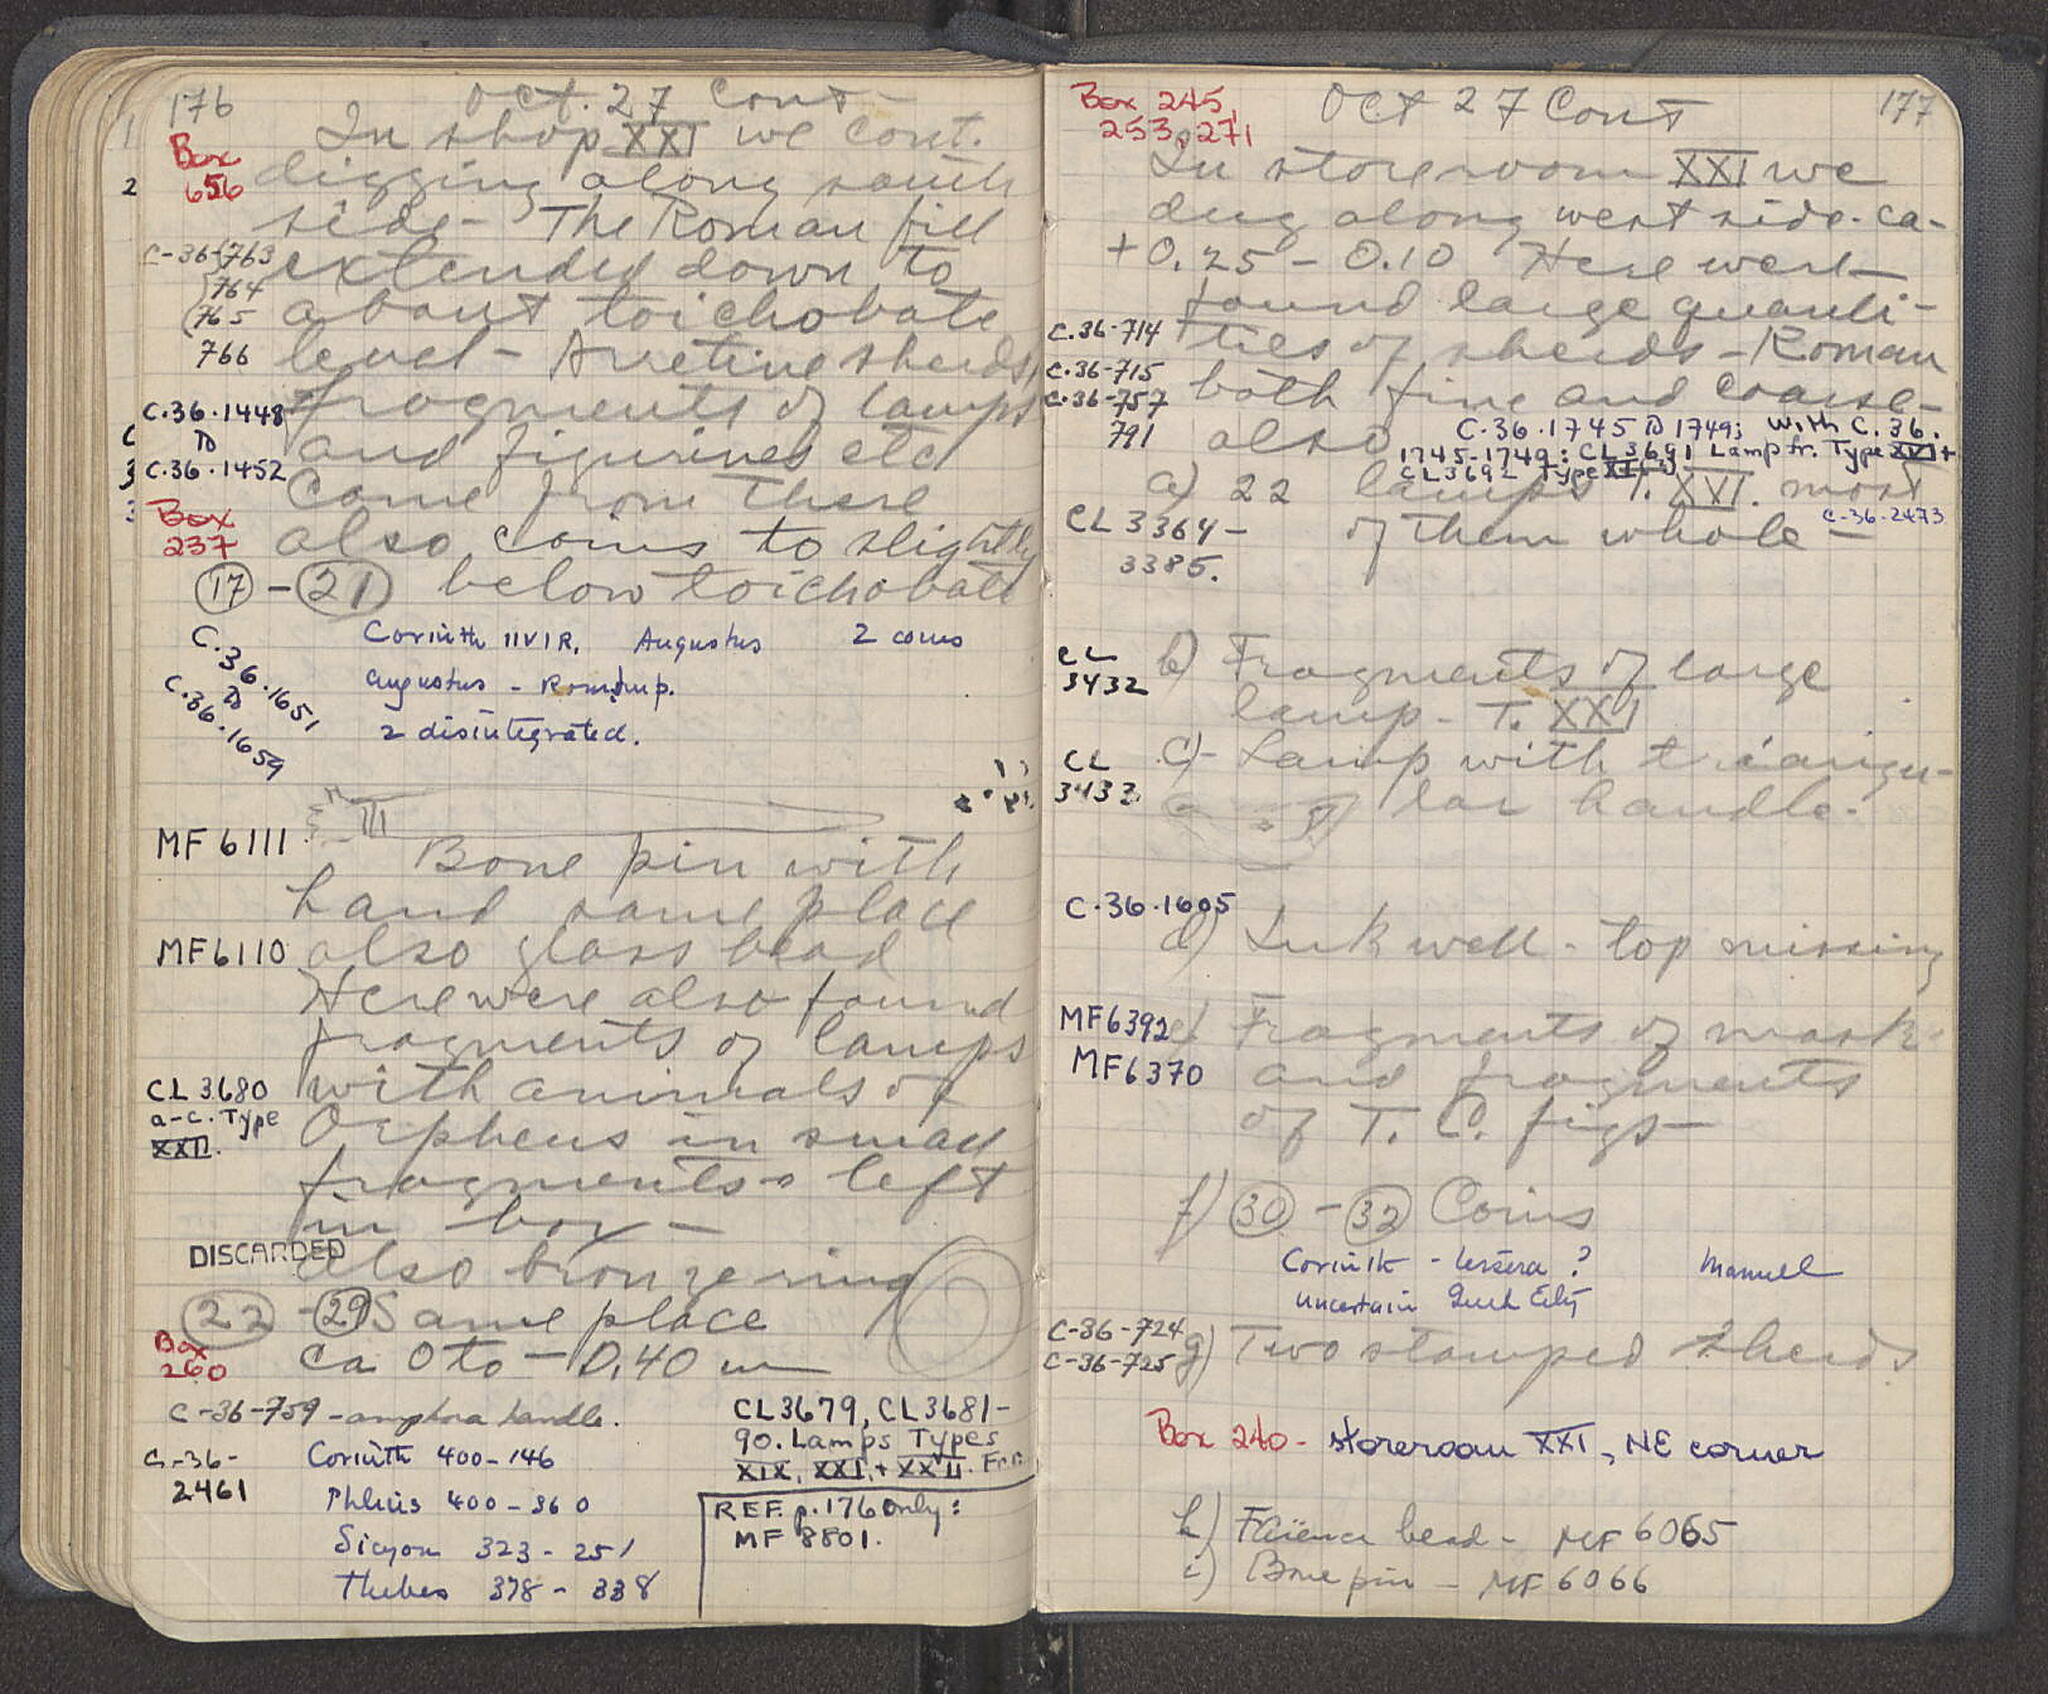 176
Oct. 27 Cont-
Box
656
In shop XXI we cont.
digging along south
side - The Roman fill
C-36-763
764
765
766
extended down to
about toichobate
level - Arretine sherds,
C.36.1448
to
C.36.1452
fragments of lamps
and figurines etc
come from there
Box
237
also coins to slightly
17 - 21 below toichobate
C.36.1651
to
C.36.1659
Corinth IIVIR. Augustus 2 coins
Augustus - Rom. Imp.
2 disintegrated.
MF 6111
Bone pin with
hand same place
MF6110
also glass bead
Here were also found
fragments of lamps
CL 3680
a-c. Type
XXII.
with animals of
Orpheus in small
fragments - left
in box -
DISCARDED
also bronze ring
22 - 29 Same place
Box
260
ca 0 to - 0.40 m
C-36-759 - amphora handle.
C-36-
2461
Corinth 400-146
Phlius 400-360
Sicyon 323-251
Thebes 378-338
CL3679, CL3681-
90. Lamps Types
XIX, XXI, + XXII. Fr.
REF. p.176 only:
MF 8801.
Box 245,
253, 271
Oct 27 Cont
177
In storeroom XXI we
dug along west side - ca -
+0.25 - 0.10 Here were
found large quanti-
C.36-714
C.36-715
C.36-757
791
ties of sherds - Roman
both fine and coarse -
also
C.36.1745 to 1749; with C.36.
1745-1749: CL3691 Lamp fr. Type XVI +
CL3692 Type
a) 22 lamps T. XVI. most
C-36-2473
CL 3364-
3385.
of them whole -
CL
3432
b) Fragments of large
lamp - T. XXI
CL
3433
c) - Lamp with triangu-
lar handle.
C.36.1605
d) Inkwell - top missing
MF6392
MF6370
e) Fragments of mask
and fragments
of T. C. figs -
f) 30 - 32 Coins
Corinth - tessera ? Manuel
uncertain Greek City
C-36-724
C-36-725
g) Two stamped sherds
Box 240 - storeroom XXI, NE corner
h) Faïence bead - MF 6065
i) Bone pin - MF 6066